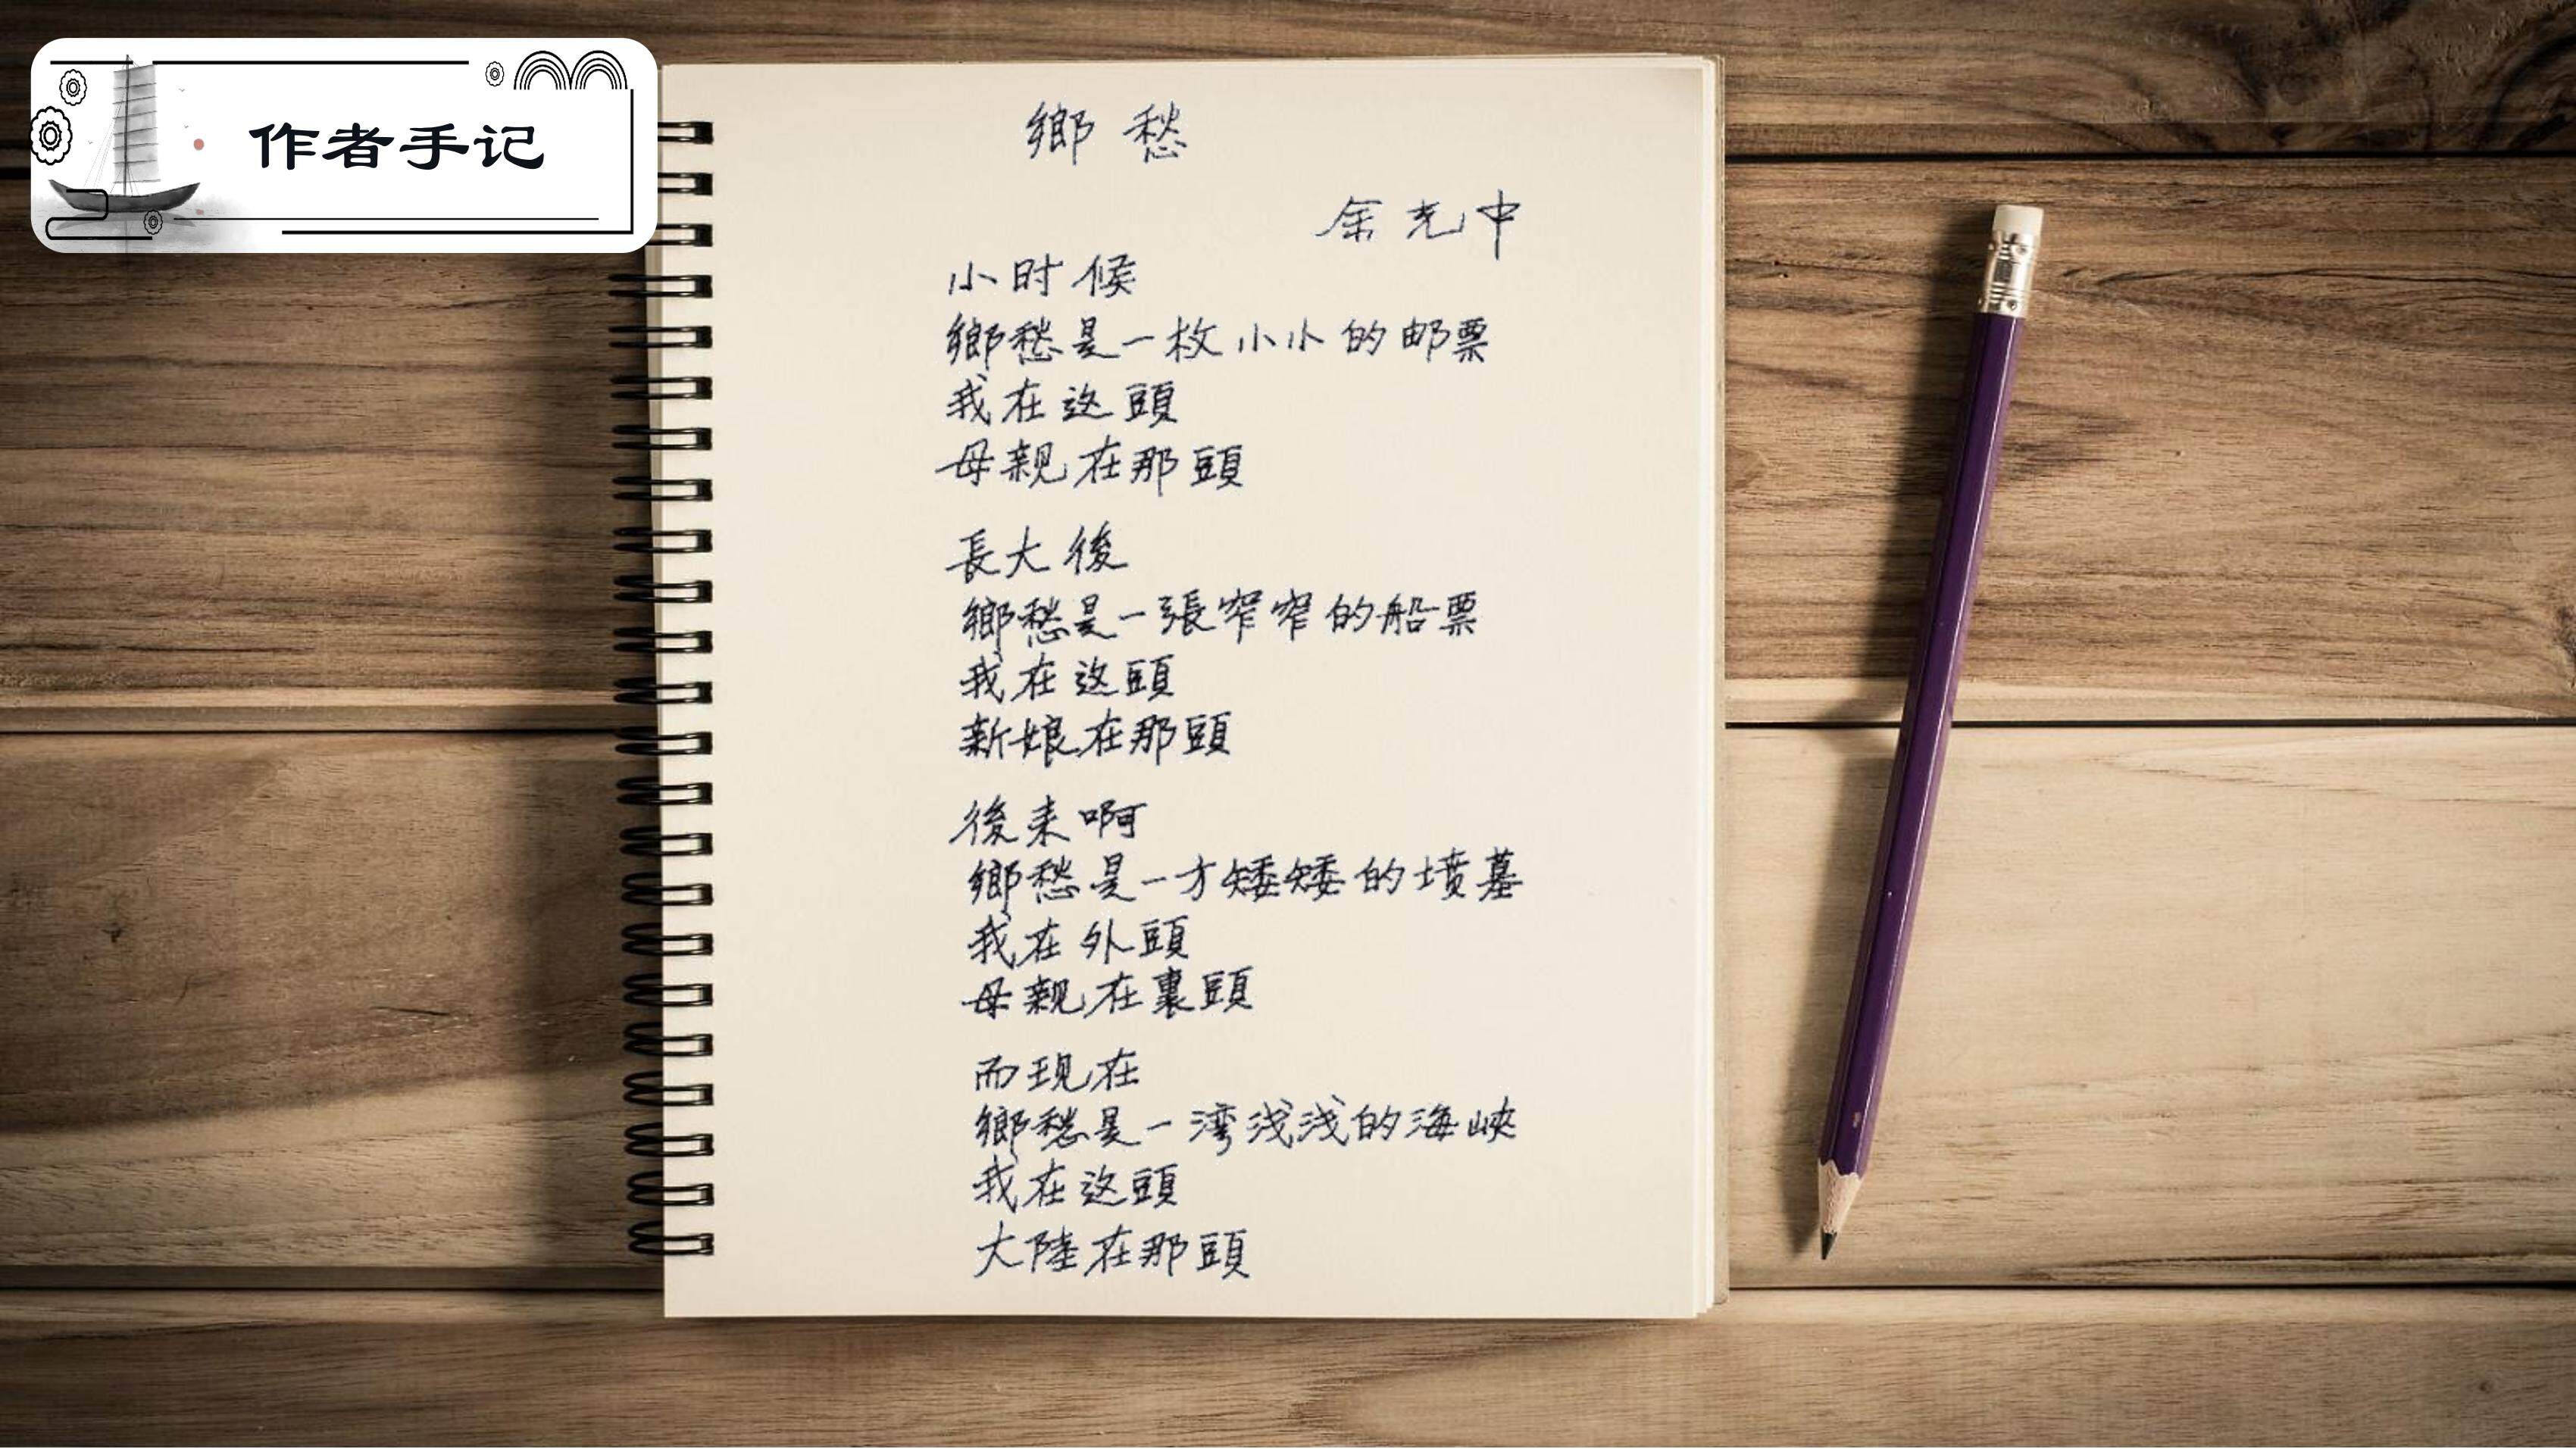 作者手记
鄉愁
余光中
小时候
鄉愁是一枚小小的邮票
我在这頭
母親在那頭
長大後
鄉愁是一張窄窄的船票
我在这頭
新娘在那頭
後来啊
鄉愁是一方矮矮的墳墓
我在外頭
母親在裏頭
而现在
鄉愁是一湾浅浅的海峡
我在这頭
大陸在那頭